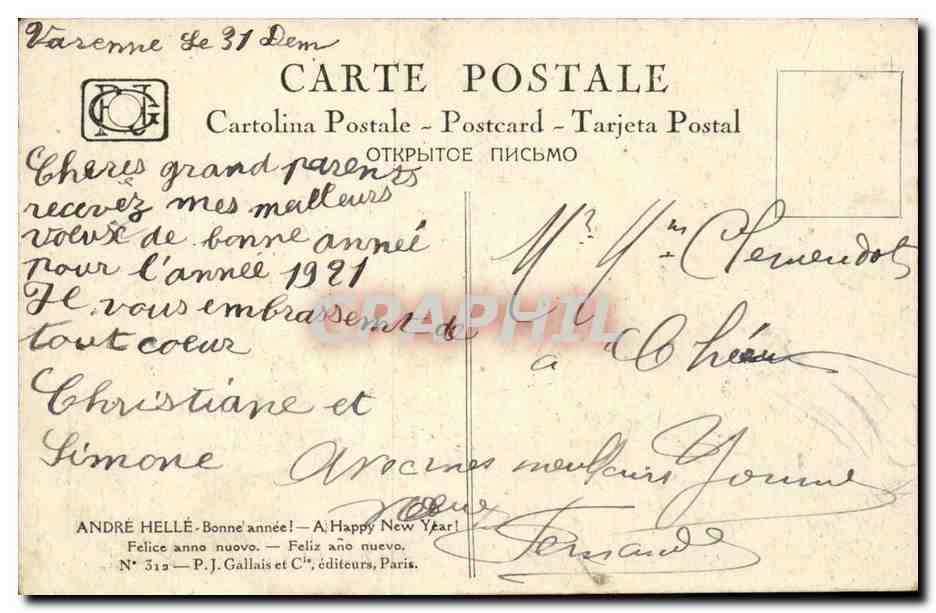 Varenne le 31 Dem
CARTE POSTALE
Cartolina Postale - Postcard - Tarjeta Postal
ОТКРЫТОЕ ПИСЬМО
Cheres grand parents
recevez mes meilleurs
voeux de bonne année
pour l'année 1921
Il vous embrassent de
tout coeur
Christiane et
Simone
Mr Mme Clemendot
a
Avec mes meilleurs
voeux
Fernande
ANDRÉ HELLÉ - Bonne année! — A Happy New Year!
Felice anno nuovo. — Feliz año nuevo.
N° 312 — P. J. Gallais et Cie, éditeurs, Paris.
CPAPHIL